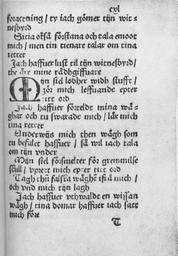 cxl
foracering / ty iach gömer tijn wit-
nesbyrd
Sitia ofså förstana och tala emoot
mich / men tin tienare talar om tina
retter
Jach haffuer lust til tijn witnesbyrd /
the äre mine rådhgiffuare
MJn siel lodher widh stufft /
gör mich leffuande epter
titt ord
Jach haffuer förtelde mina wä-
ghar och tu swarade mich / lär mich
tina retter
Underwijs mich then wägh som
tu befaler haffuer / så wil iach tala
om tijn under
Mijn siel försmelter för gremmilse
skull / vpreet mich epter titt ord
Tagh then falska wäghe ifrå mich /
och vnd mich tijn lagh
Jach haffuer vthwalde en wissan
wägh / tina domar haffuer iach satt
mich före
T